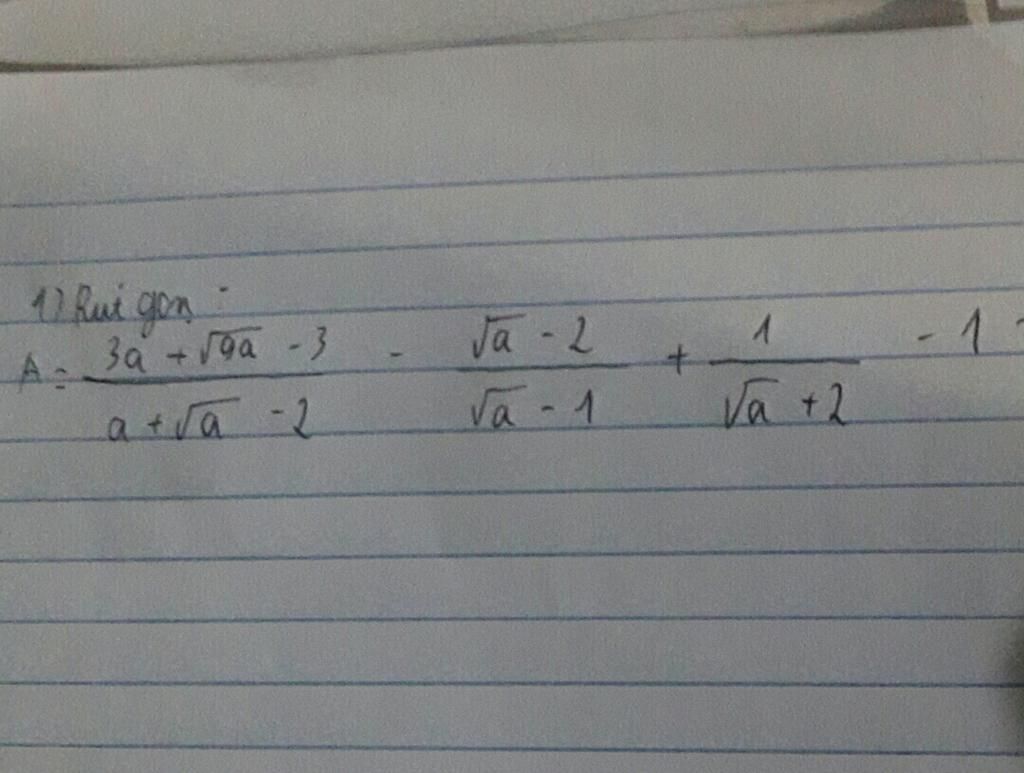 1) Rút gọn :
A = \frac{3a + \sqrt{9a} - 3}{a + \sqrt{a} - 2} - \frac{\sqrt{a} - 2}{\sqrt{a} - 1} + \frac{1}{\sqrt{a} + 2} - 1